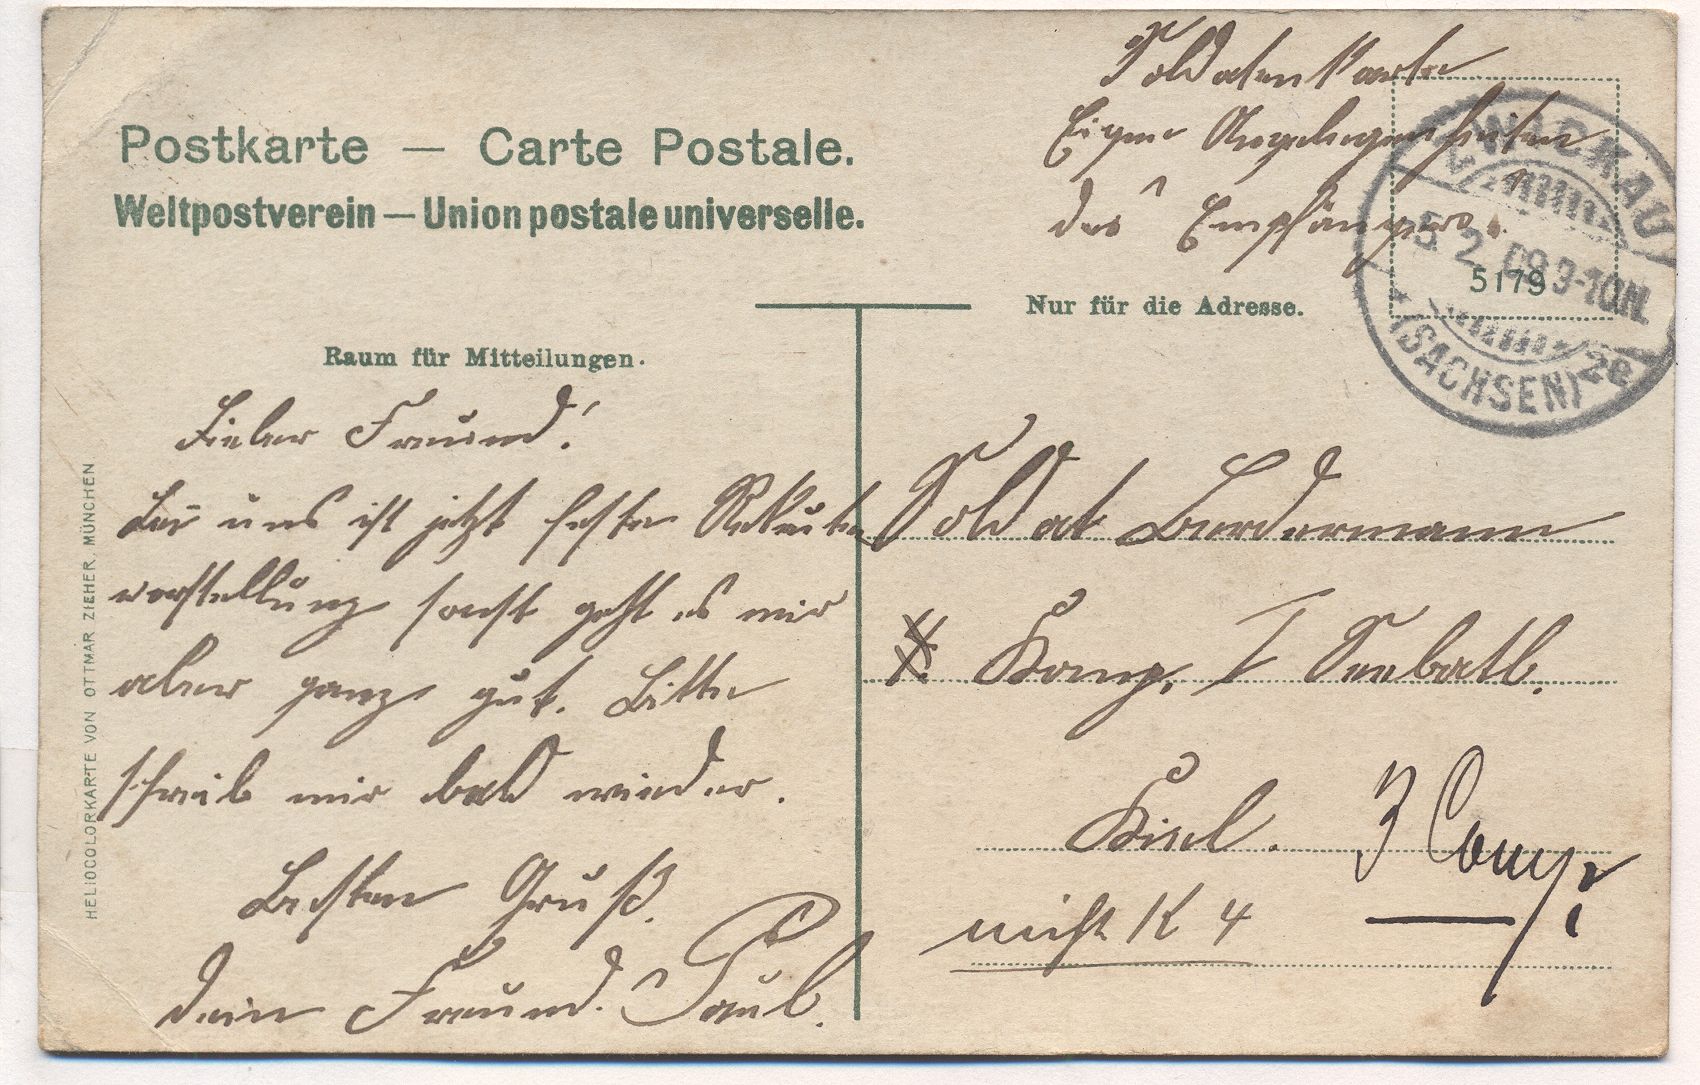 Soldatenkarte
Eigene Angelegenheiten
des Empfängers.
Postkarte — Carte Postale.
Weltpostverein — Union postale universelle.
ZWICKAU
5.2.09.9-10N.
* (SACHSEN) 2e
5179
Nur für die Adresse.
Raum für Mitteilungen.
Lieber Freund!
Bei uns ist jetzt feste Rekruten
vorstellung sonst geht es mir
aber ganz gut. Bitte
schreib mir bald wieder.
Besten Gruß.
Dein Freund. Paul.
Soldat
Komp. I Seebatl.
Kiel.
3 Comp
nicht K 4
HELIOCOLORKARTE VON OTTMAR ZIEHER, MÜNCHEN